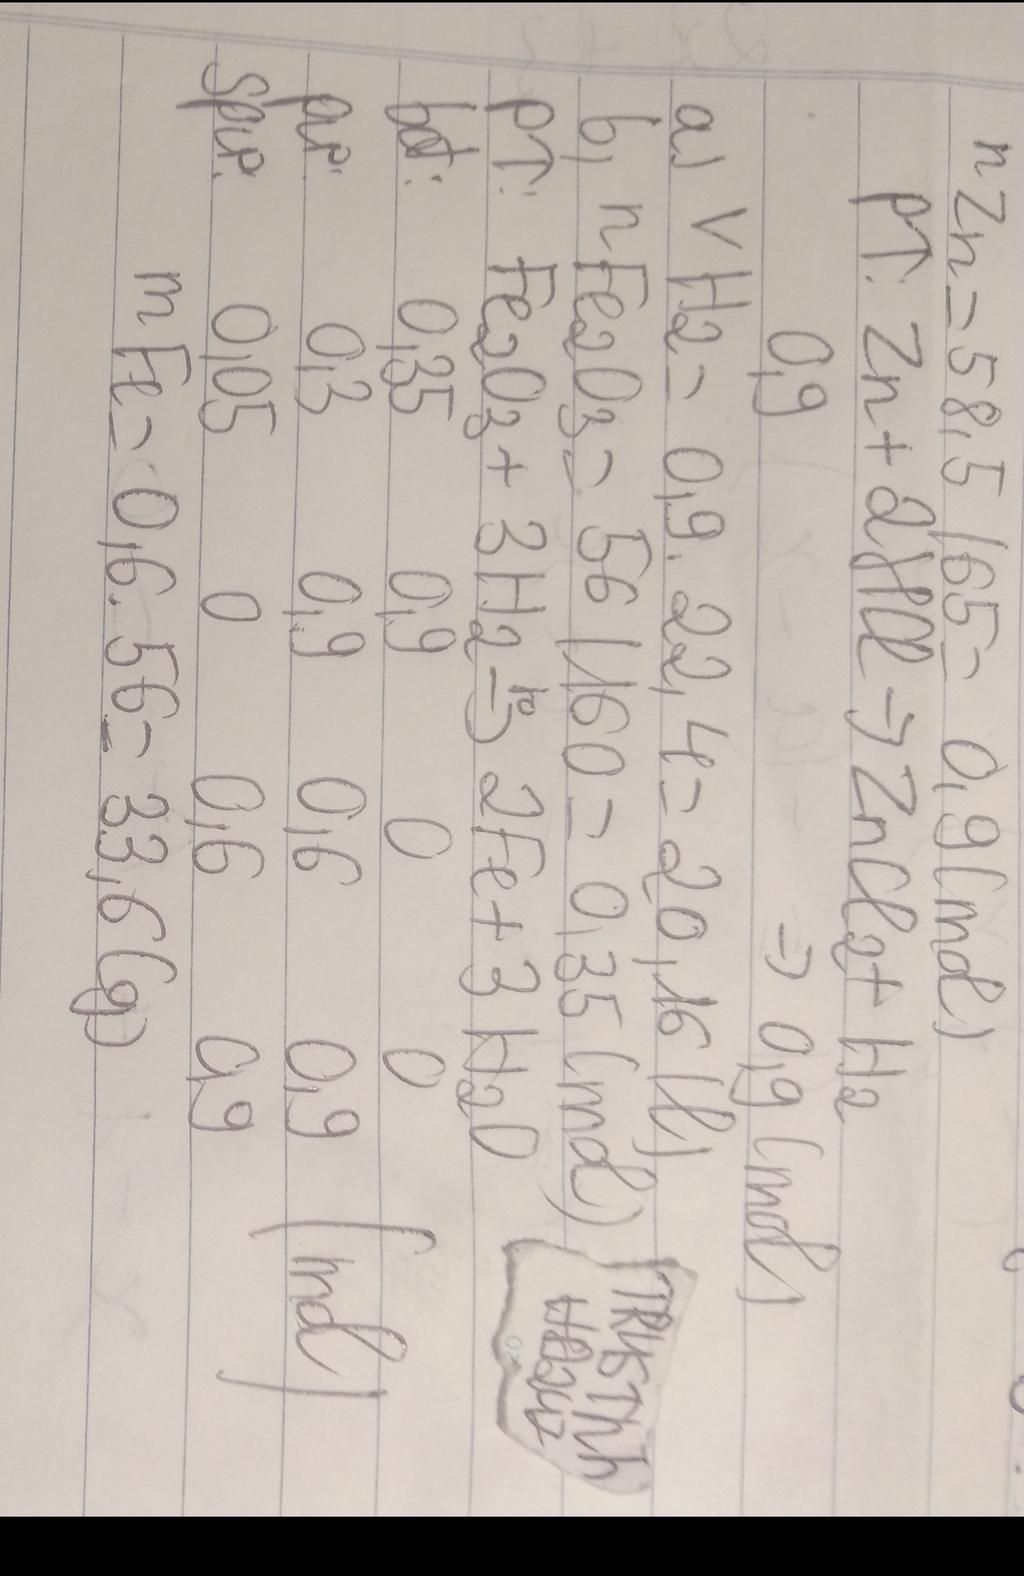 nZn = 58,5 / 65 = 0,9 (mol)
PT: Zn + 2HCl → ZnCl2 + H2
0,9 → 0,9 (mol)
a) VH2 = 0,9. 22,4 = 20,16 (l)
b, nFe2O3 = 56 / 160 = 0,35 (mol)
PT: Fe2O3 + 3H2 → to 2Fe + 3H2O
bđ: 0,35 0,9 0 0
pư: 0,3 0,9 0,6 0,9 (mol)
Spư: 0,05 0 0,6 0,9
mFe = 0,6. 56 = 33,6 (g)